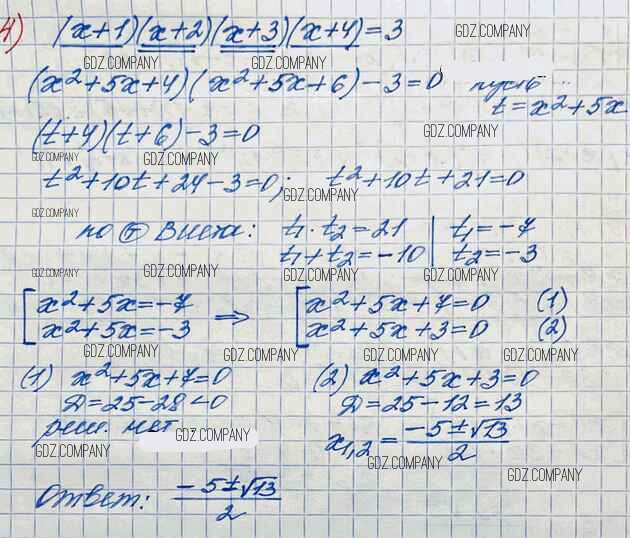 4) (x+1)(x+2)(x+3)(x+4)=3
GDZ.COMPANY
GDZ.COMPANY GDZ.COMPANY
(x²+5x+4)(x²+5x+6)-3=0 пусть
t=x²+5x
(t+4)(t+6)-3=0 GDZ.COMPANY
GDZ.COMPANY GDZ.COMPANY
t²+10t+24-3=0; t²+10t+21=0
GDZ.COMPANY
GDZ.COMPANY
по т Виета: t₁·t₂=21 | t₁=-7
t₁+t₂=-10 | t₂=-3
GDZ.COMPANY GDZ.COMPANY GDZ.COMPANY
[x²+5x=-7 ⇒ [x²+5x+7=0 (1)
[x²+5x=-3 [x²+5x+3=0 (2)
GDZ.COMPANY GDZ.COMPANY GDZ.COMPANY GDZ.COMPANY
(1) x²+5x+7=0 (2) x²+5x+3=0
Д=25-28<0 Д=25-12=13
реш. нет x₁,₂=(-5±√13)/2
GDZ.COMPANY
GDZ.COMPANY GDZ.COMPANY
GDZ.COMPANY
Ответ: (-5±√13)/2